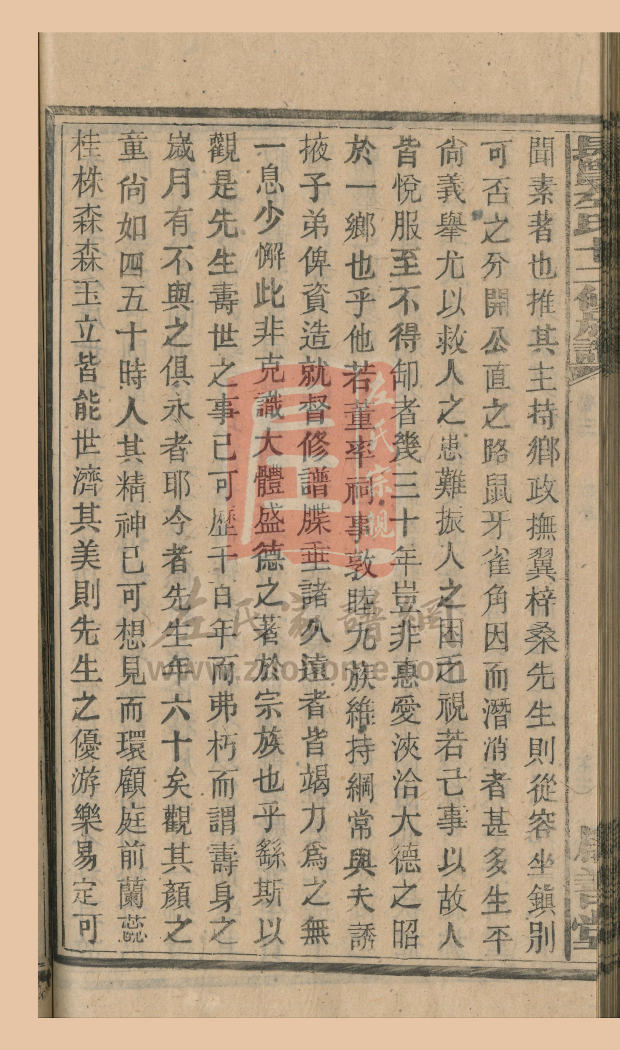 聞素著也推其主持鄉政撫翼梓桑先生則從容坐鎮別
可否之分開公直之路鼠牙雀角因而潛消者甚多生平
尙義舉尤以救人之患難振人之困乏視若己事以故人
皆悅服至不得卸者幾三十年豈非惠愛浹洽大德之昭
於一鄉也乎他若董率祠事敦睦九族維持綱常與夫誘
掖子弟俾資造就督修譜牒垂諸久遠者皆竭力爲之無
一息少懈此非克識大體盛德之著於宗族也乎繇斯以
觀是先生壽世之事已可歷千百年而弗朽而謂壽身之
歲月有不與之俱永者耶今者先生年六十矣觀其顏之
童尙如四五十時人其精神已可想見而環顧庭前蘭蕊
桂株森森玉立皆能世濟其美則先生之優游樂易定可
左氏宗親
左氏家譜網